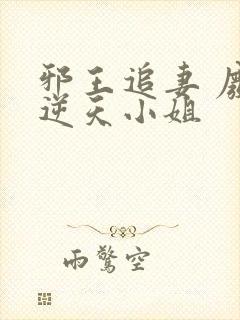 邪王追妻 废
逆天小姐
雨惊空